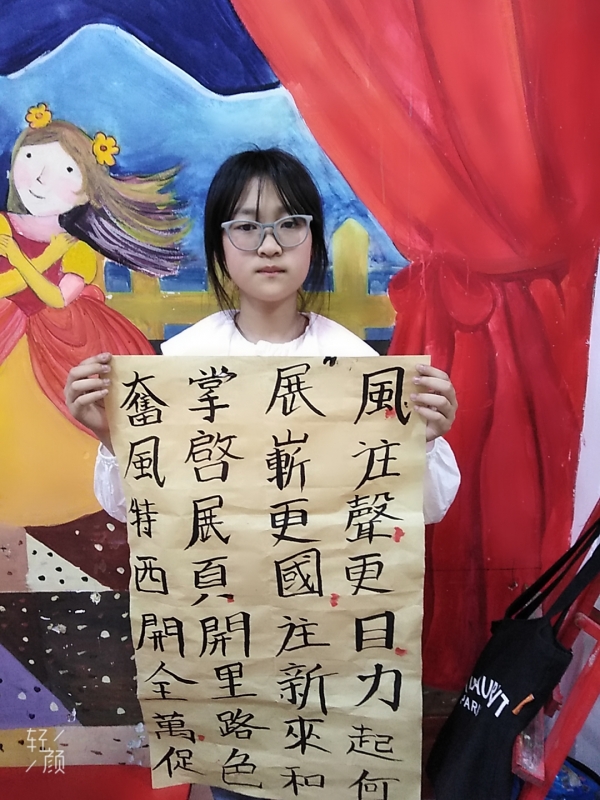 風注聲更日力起何
展嶄更國注新來和
掌啓展頁開里路色
奮風特西開全萬促
轻颜